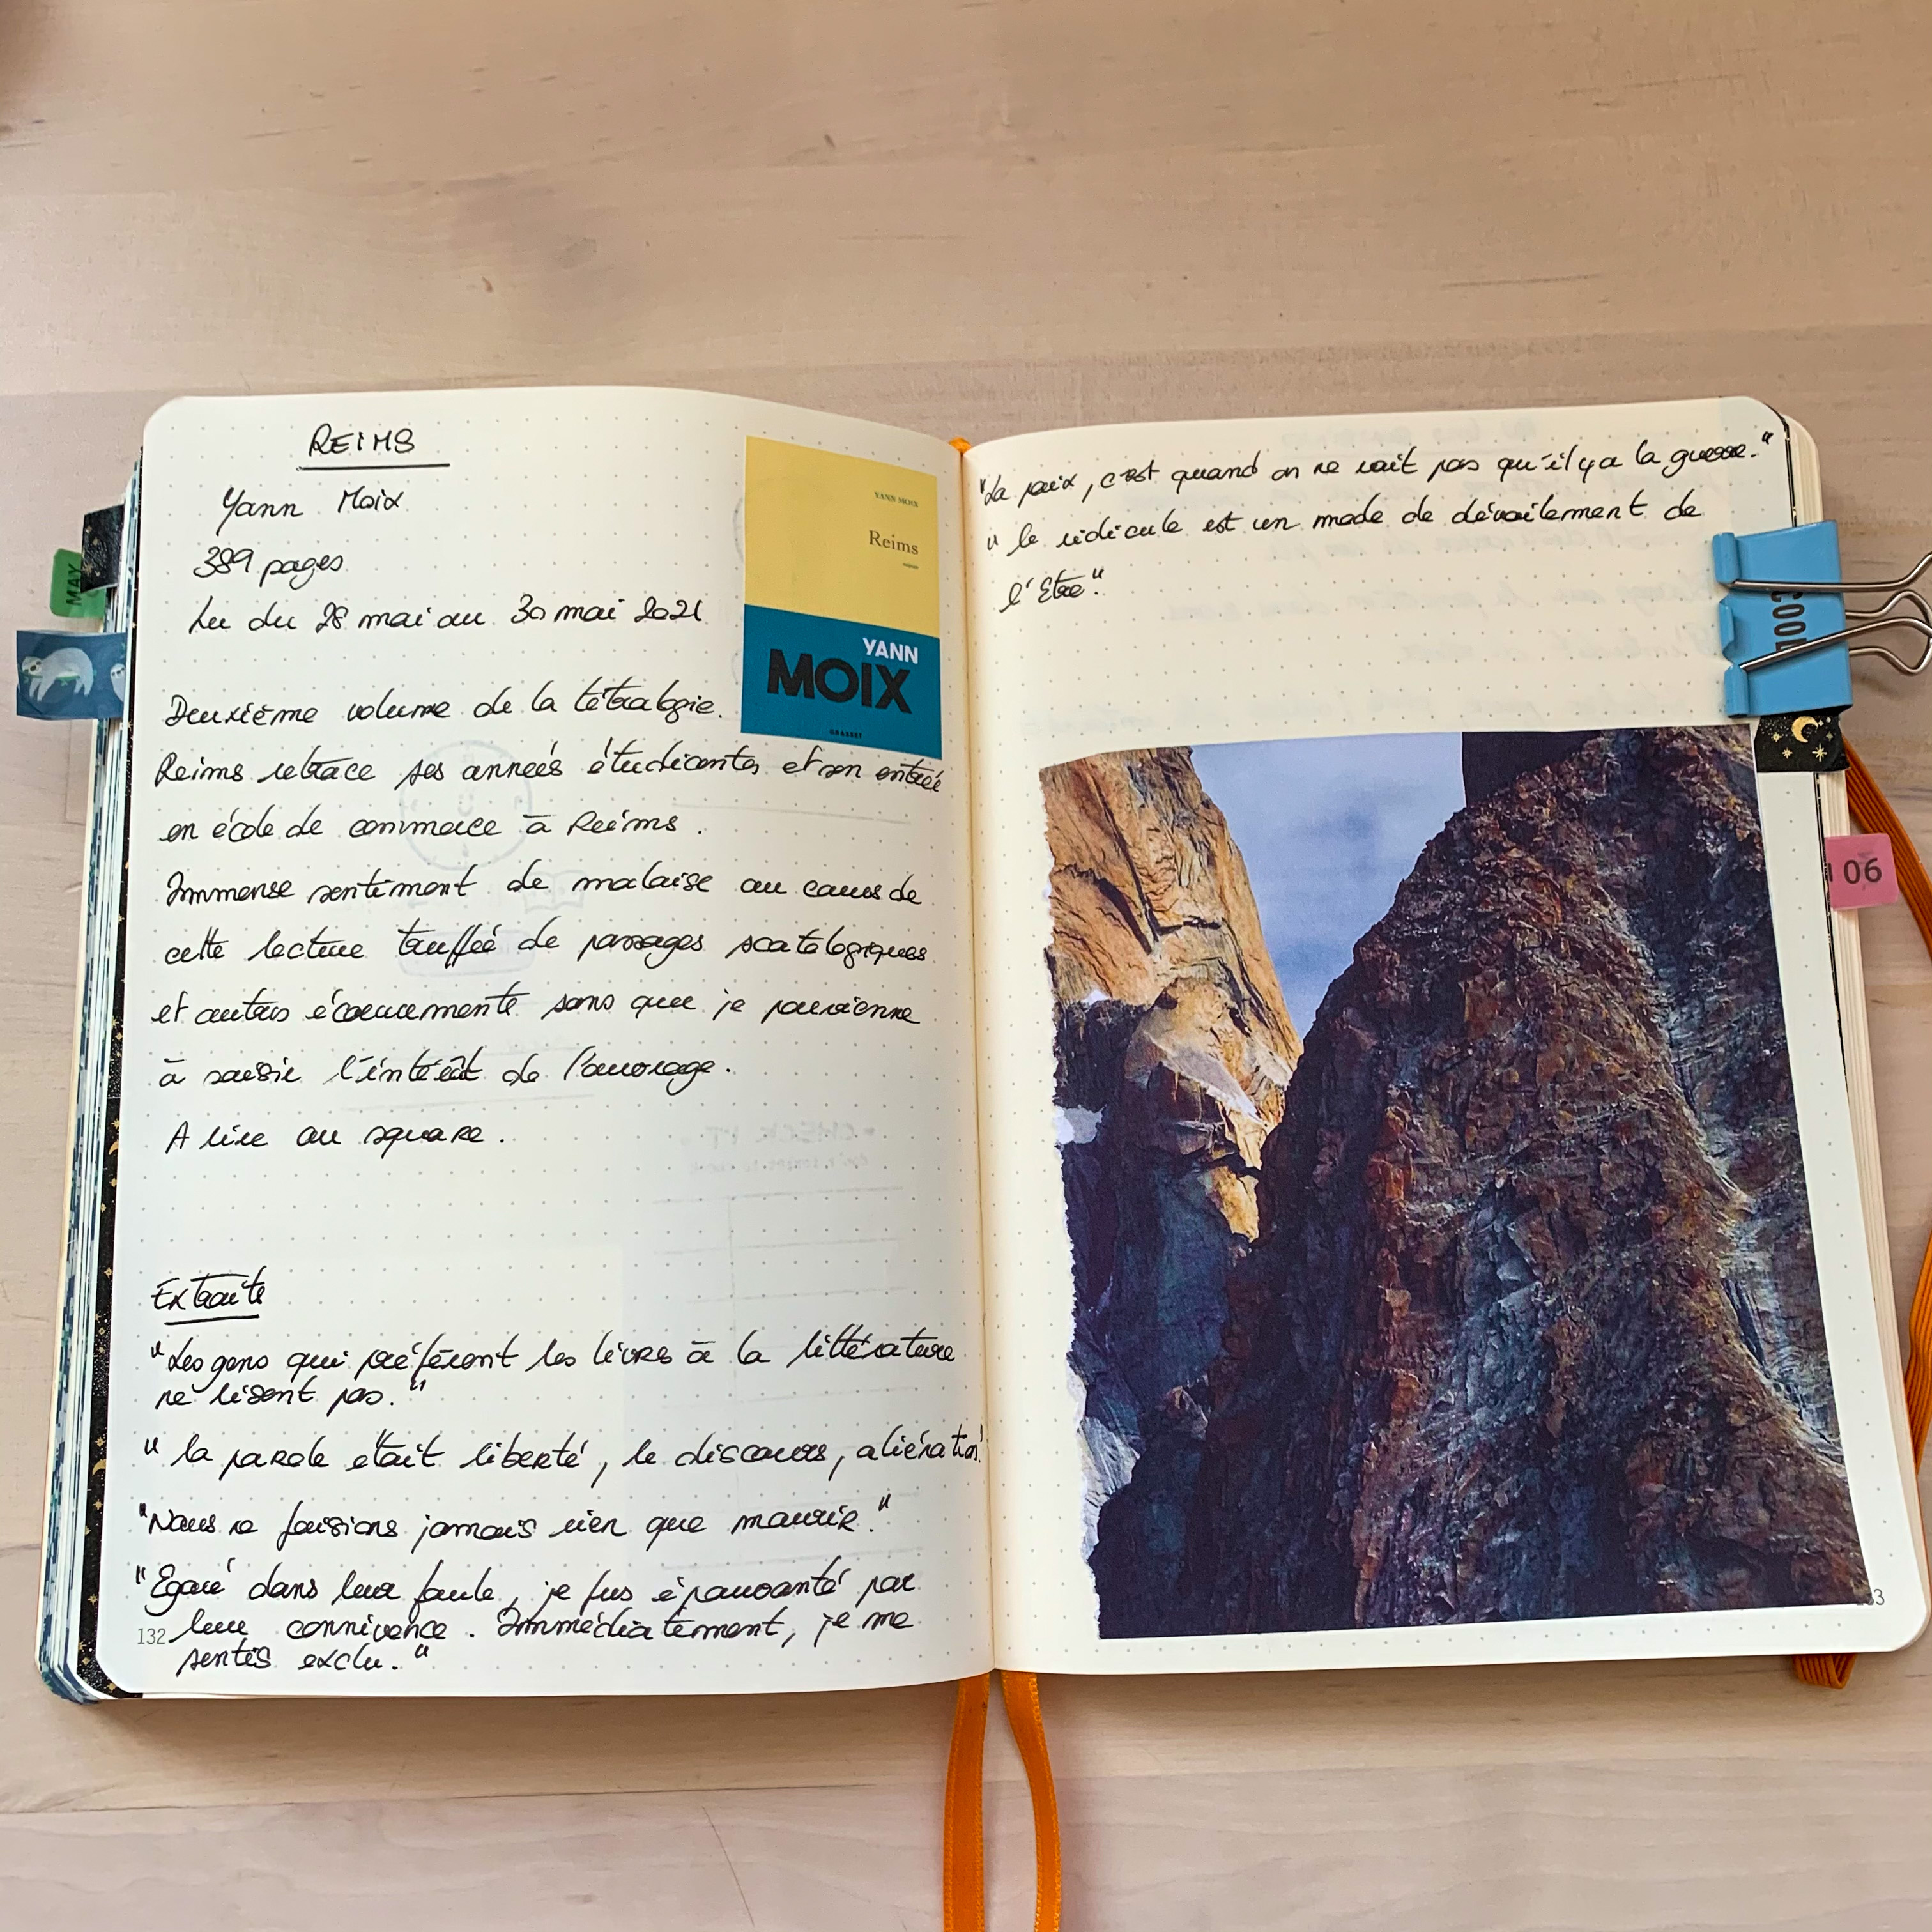 REIMS
Yann Moix
389 pages
Lu du 28 mai au 30 mai 2021
YANN MOIX
Reims
YANN
MOIX
GRASSET
Deuxième volume de la tétralogie.
Reims retrace ses années étudiantes et son entrée
en école de commerce à Reims.
Immense sentiment de malaise au cours de
cette lecture touffée de passages scatologiques
et autres écoeurements sans que je parvienne
à saisir l'intérêt de l'ouvrage.
A lire au square.
Extraits
"Les gens qui préfèrent les livres à la littérature
ne lisent pas."
"la parole était liberté, le discours, aliénation"
"Nous ne faisions jamais rien que mourir."
"Egaré dans leur foule, je fus épouvanté par
leur connivence. Immédiatement, je me
sentis exclu."
132
"La paix, c'est quand on ne voit pas qu'il y a la guerre."
"le ridicule est un mode de dévoilement de
l'Etre."
MAY
COOL
06
33